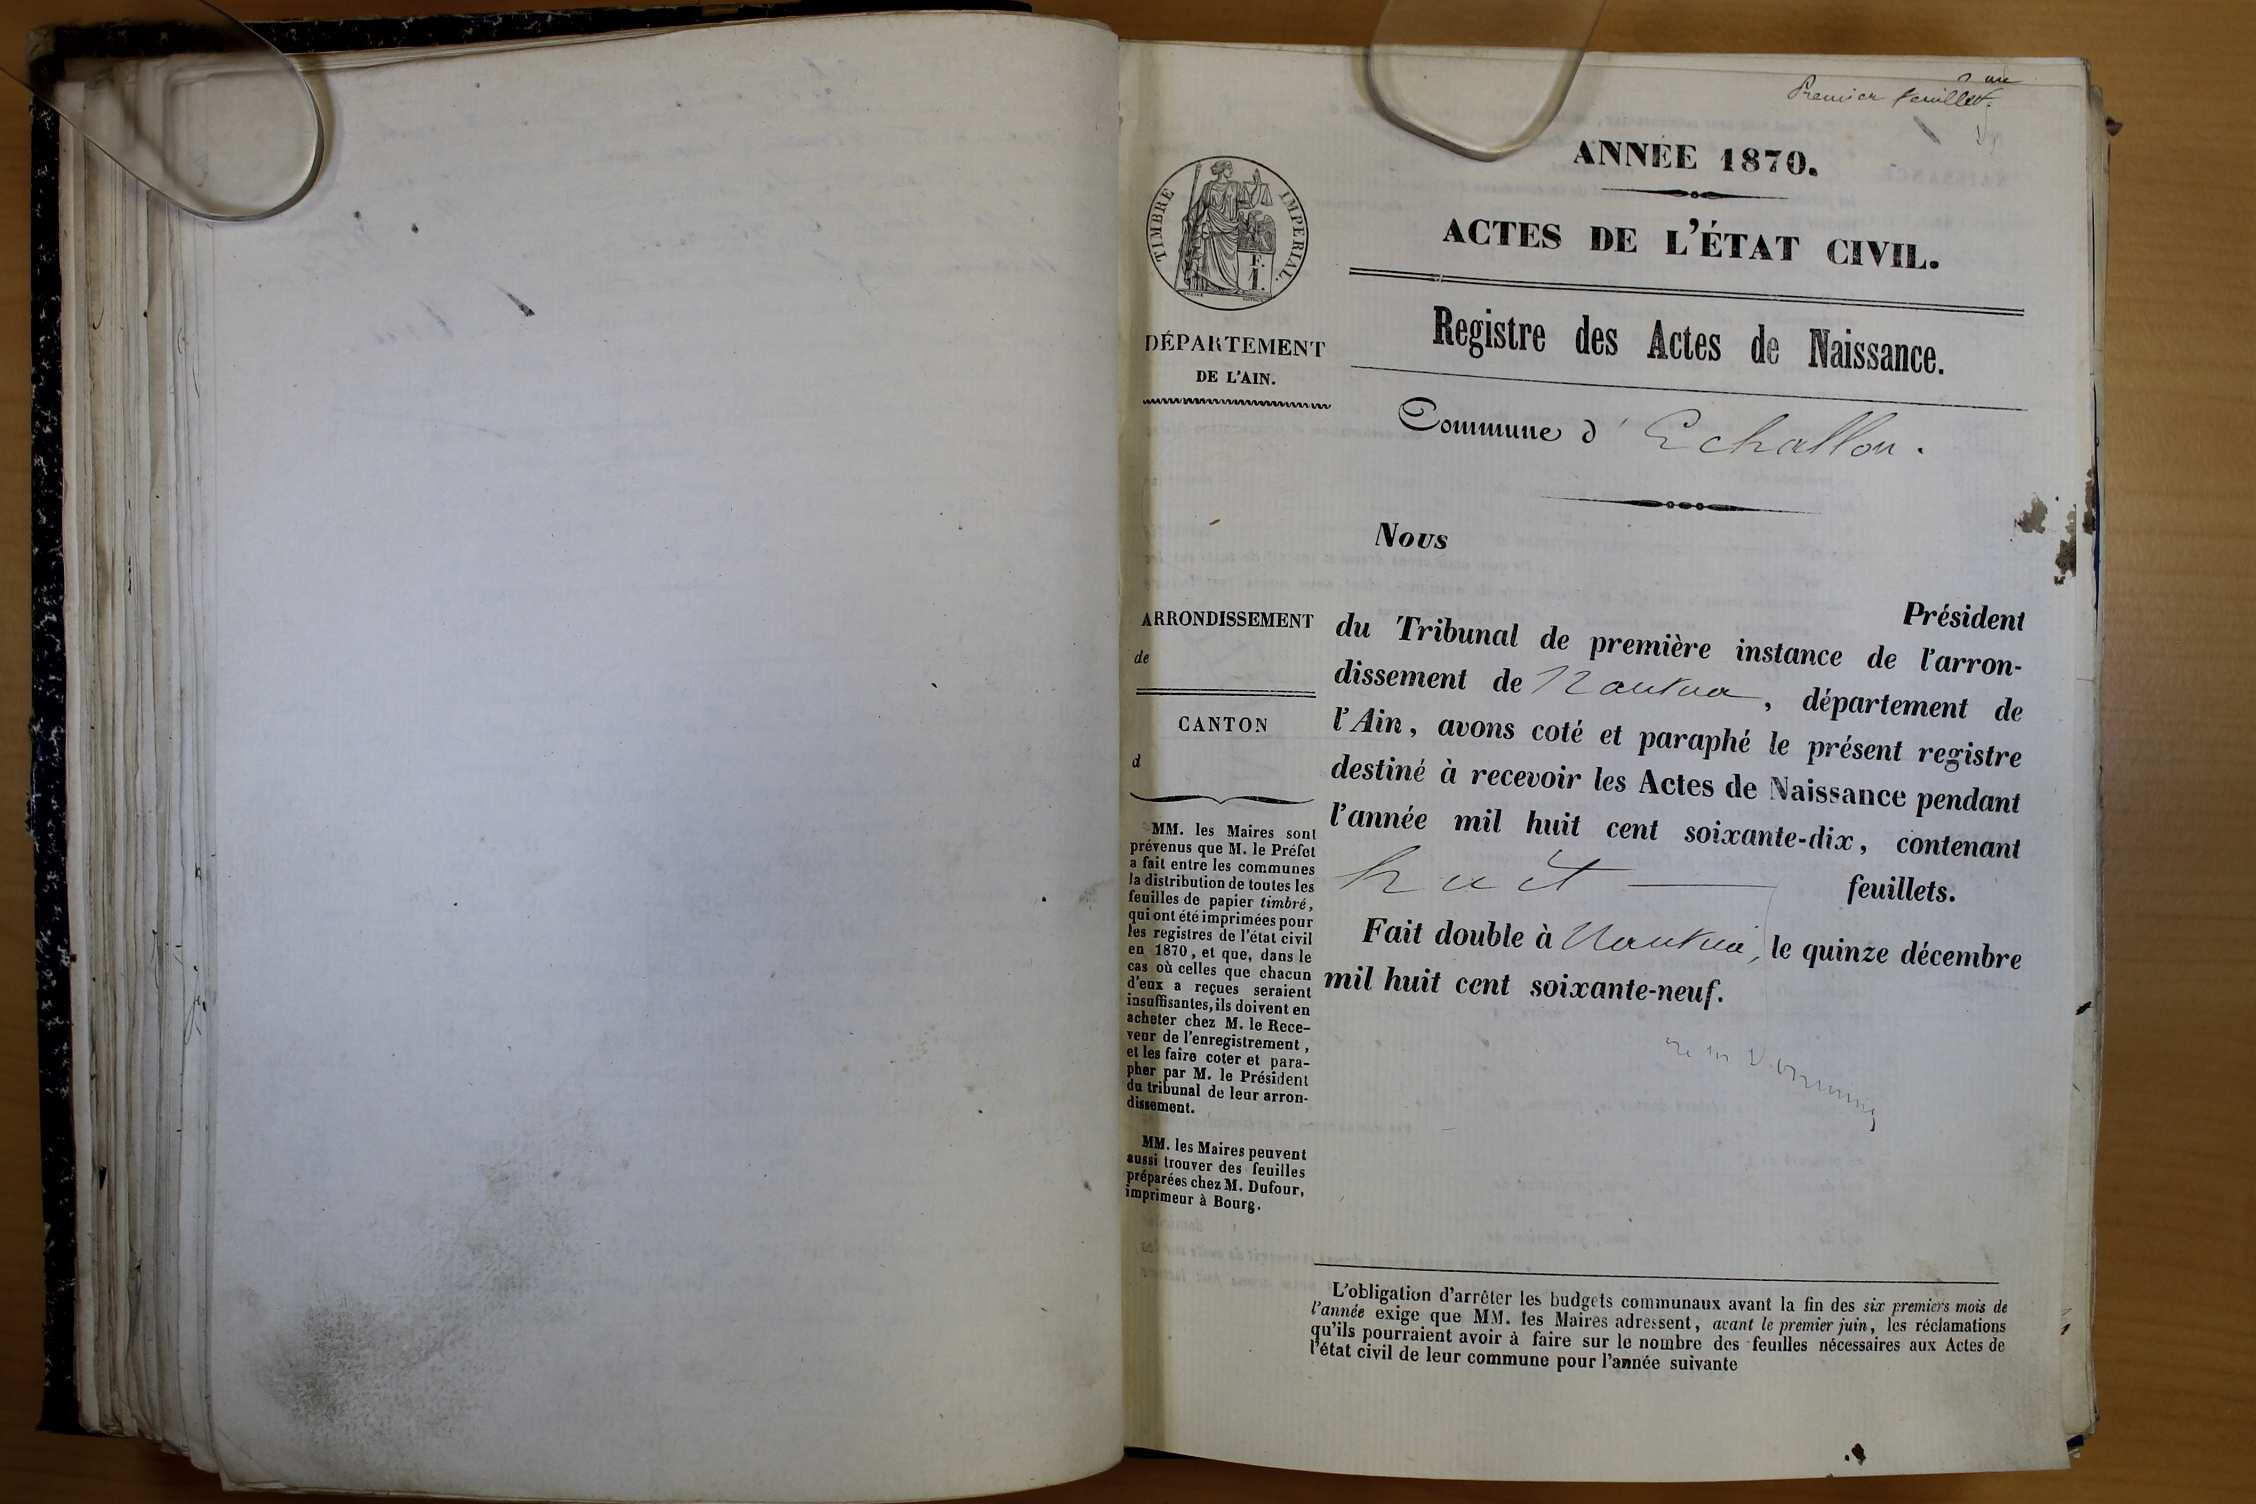 Premier feuillet.
ANNÉE 1870.
ACTES DE L'ÉTAT CIVIL.
TIMBRE IMPERIAL.
Registre des Actes de Naissance.
DÉPARTEMENT
DE L'AIN.
Commune d' Echallon.
Nous
Président
ARRONDISSEMENT
de
CANTON
d
du Tribunal de première instance de l'arron-
dissement de Nantua, département de
l'Ain, avons coté et paraphé le présent registre
destiné à recevoir les Actes de Naissance pendant
l'année mil huit cent soixante-dix, contenant
huit feuillets.
Fait double à Nantua, le quinze décembre
mil huit cent soixante-neuf.
MM. les Maires sont
prévenus que M. le Préfet
a fait entre les communes
la distribution de toutes les
feuilles de papier timbré,
qui ont été imprimées pour
les registres de l'état civil
en 1870, et que, dans le
cas où celles que chacun
d'eux a reçues seraient
insuffisantes, ils doivent en
acheter chez M. le Rece-
veur de l'enregistrement,
et les faire coter et para-
pher par M. le Président
du tribunal de leur arron-
dissement.
MM. les Maires peuvent
aussi trouver des feuilles
préparées chez M. Dufour,
imprimeur à Bourg.
L'obligation d'arrêter les budgets communaux avant la fin des six premiers mois de
l'année exige que MM. les Maires adressent, avant le premier juin, les réclamations
qu'ils pourraient avoir à faire sur le nombre des feuilles nécessaires aux Actes de
l'état civil de leur commune pour l'année suivante